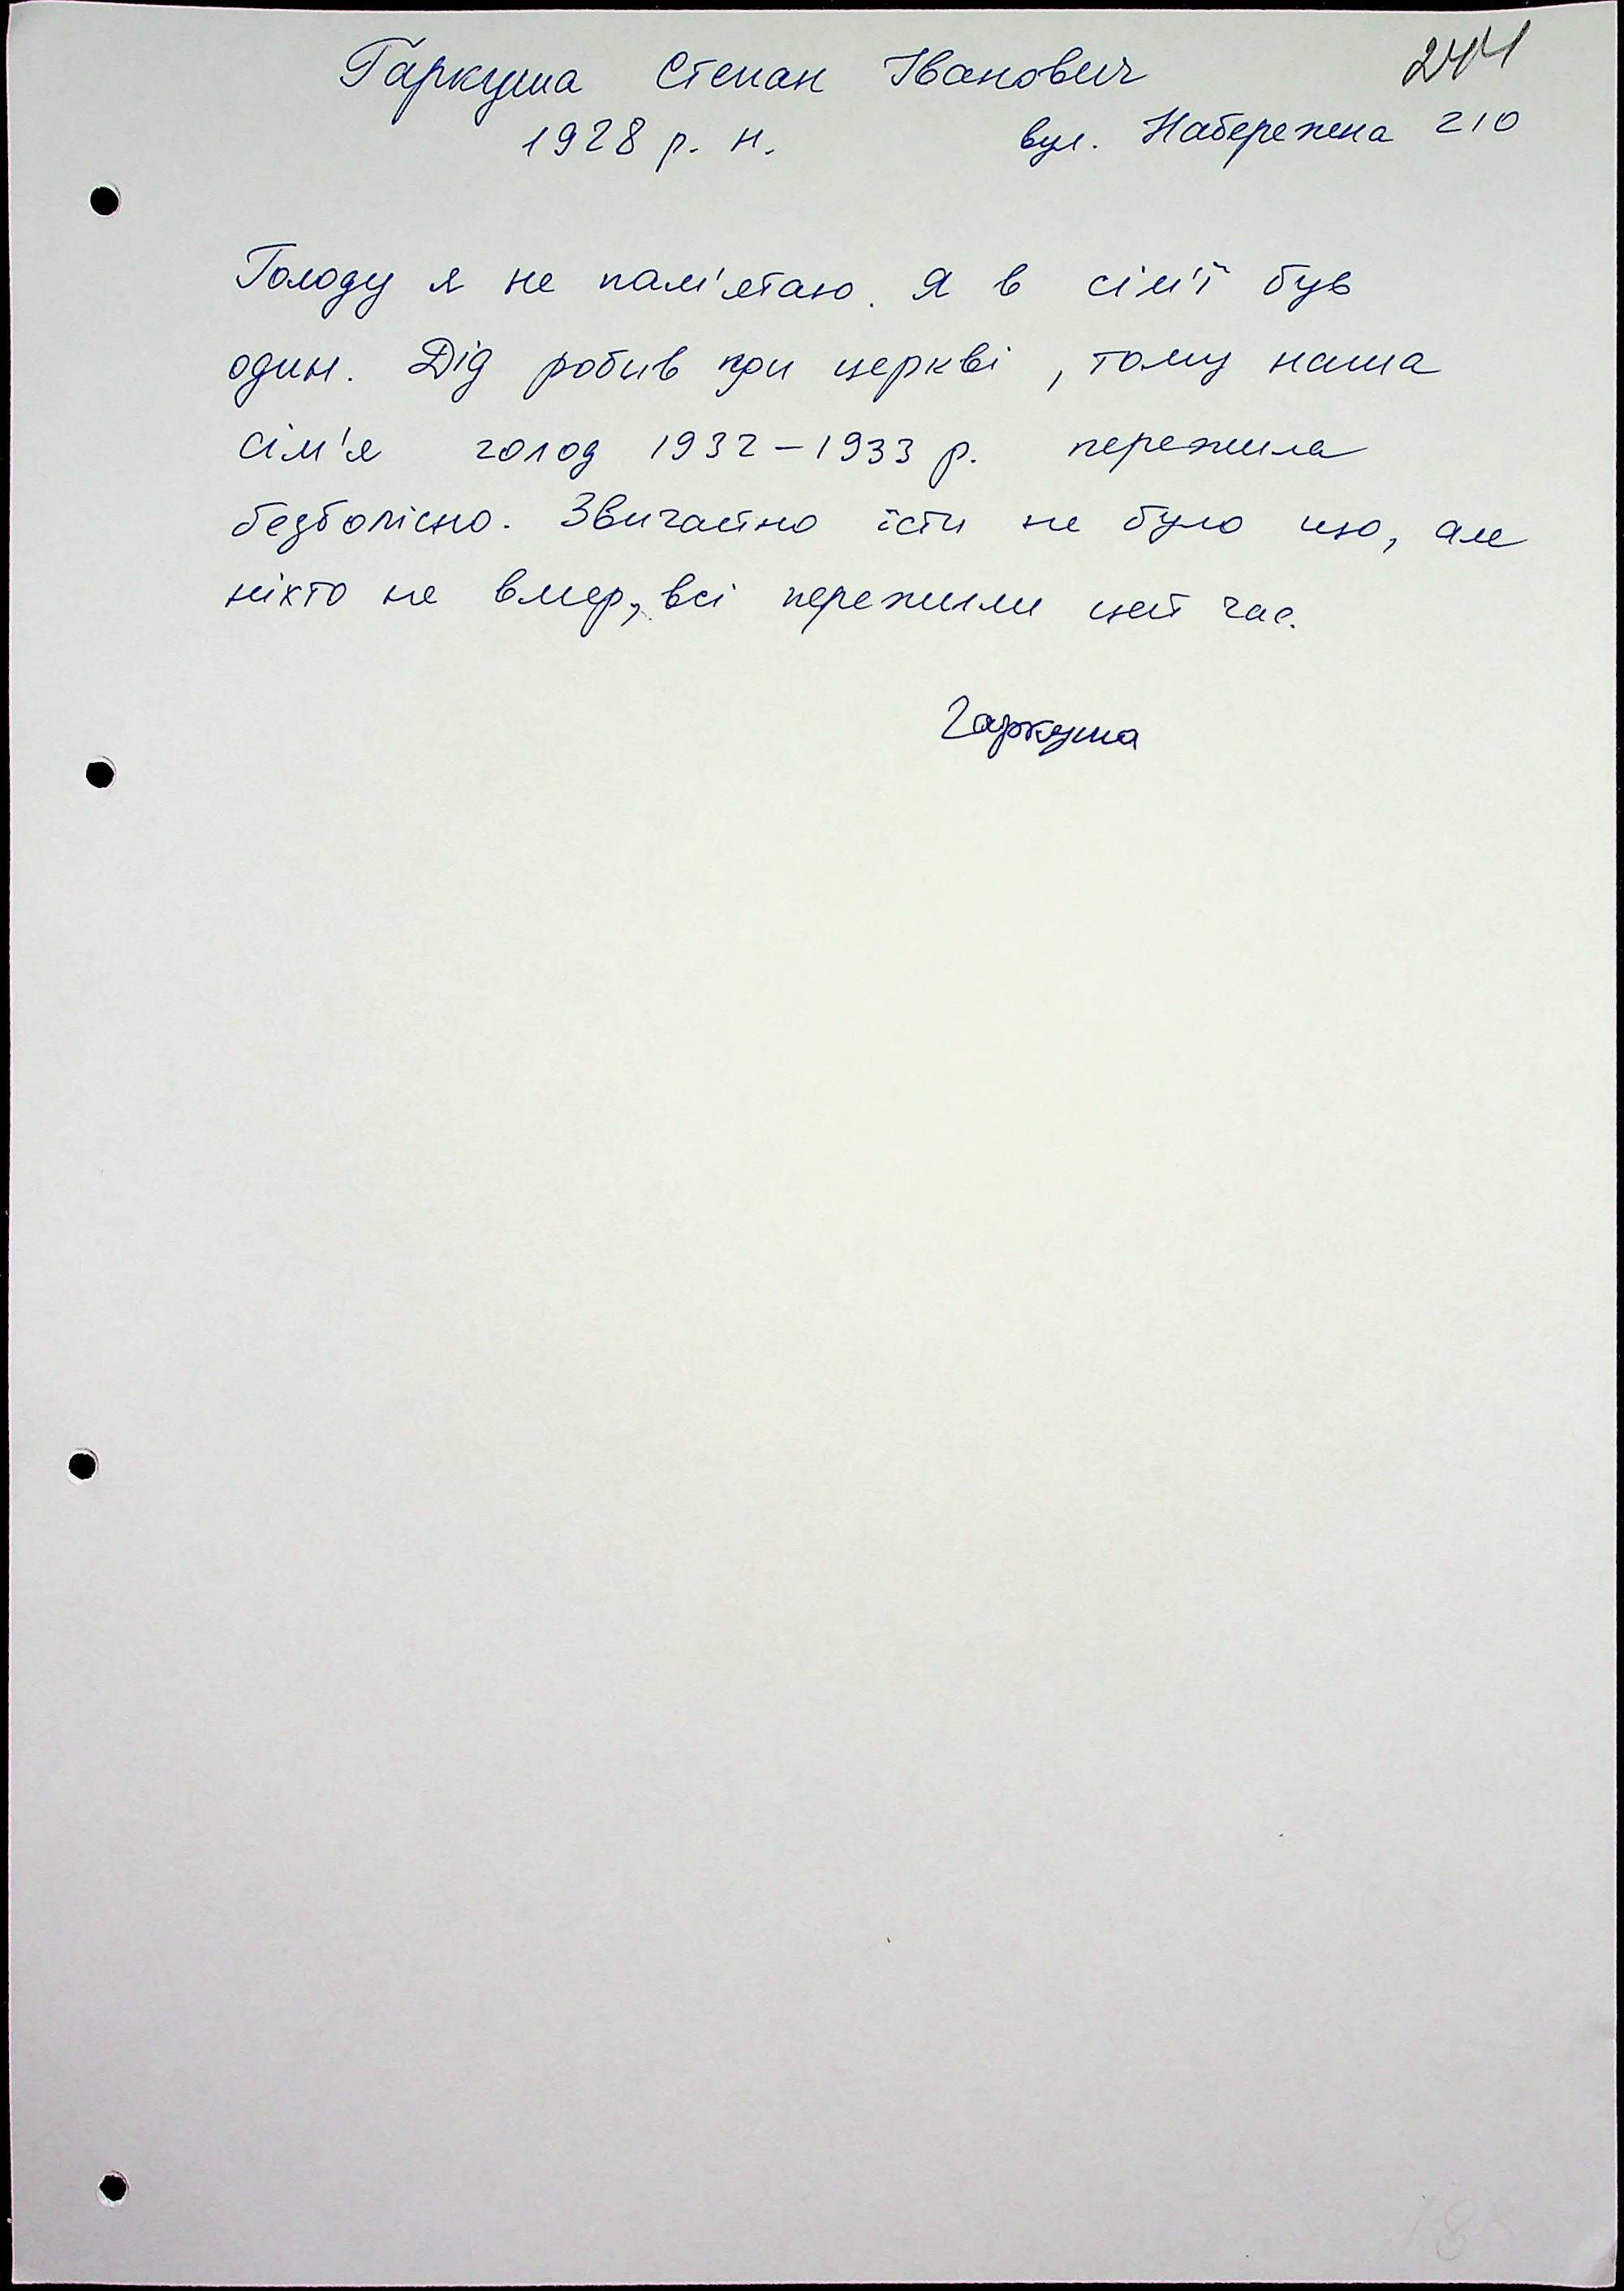 244
Гаркуша Степан Іванович
1928 р. н. вул. Набережна 210
Голоду я не пам'ятаю. Я в сім'ї був
один. Дід робив при церкві, тому наша
сім'я голод 1932-1933 р. пережила
безболісно. Звичайно їсти не було що, але
ніхто не вмер, всі пережили цей час.
Гаркуша